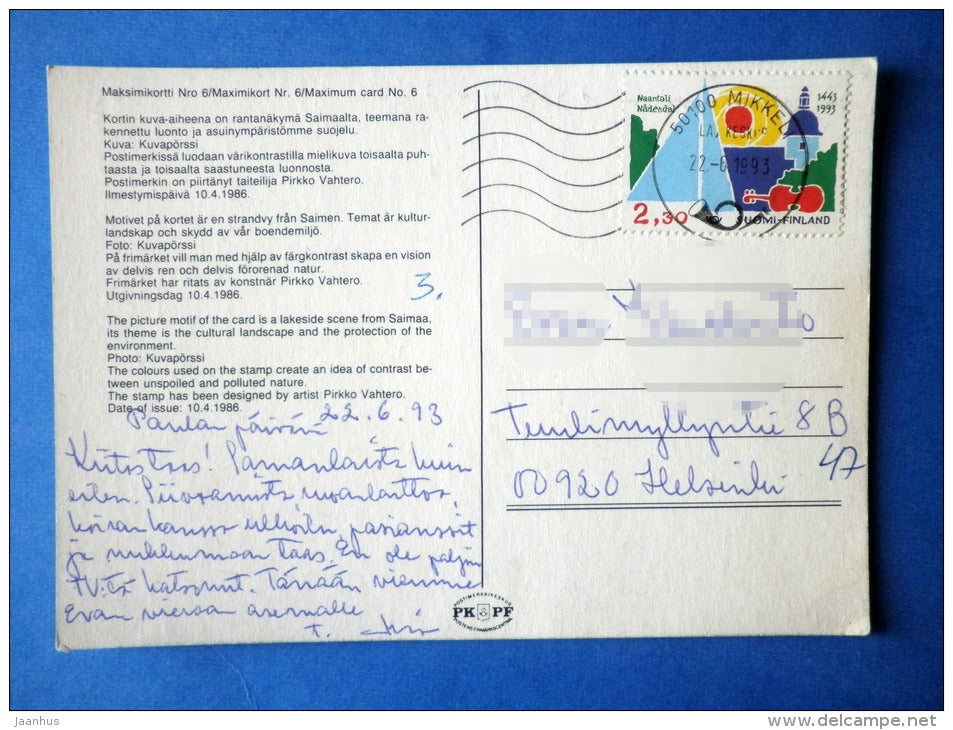 Maksimikortti Nro 6/Maximikort Nr. 6/Maximum card No. 6
Kortin kuva-aiheena on rantanäkymä Saimaalta, teemana ra-
kennettu luonto ja asuinympäristömme suojelu.
Kuva: Kuvapörssi
Postimerkissä luodaan värikontrastilla mielikuva toisaalta puh-
taasta ja toisaalta saastuneesta luonnosta.
Postimerkin on piirtänyt taiteilija Pirkko Vahtero.
Ilmestymispäivä 10.4.1986.
Motivet på kortet är en strandvy från Saimen. Temat är kultur-
landskap och skydd av vår boendemiljö.
Foto: Kuvapörssi
På frimärket vill man med hjälp av färgkontrast skapa en vision
av delvis ren och delvis förorenad natur.
Frimärket har ritats av konstnär Pirkko Vahtero.
Utgivningsdag 10.4.1986.
3.
The picture motif of the card is a lakeside scene from Saimaa,
its theme is the cultural landscape and the protection of the
environment.
Photo: Kuvapörssi
The colours used on the stamp create an idea of contrast be-
tween unspoiled and polluted nature.
The stamp has been designed by artist Pirkko Vahtero.
Date of issue: 10.4.1986.
Paulan päivänä 22.6.93
Kiitos taas! Samanlaista kuin
eilen. ruoanlaittoa,
koiran kanssa ulkoilu, pasianssit
ja nukkumaan taas. En ole paljon
TV:tä katsonut. Tänään viemme
Evan vieraan asemalle
T.
Naantali
Nådendal
1443
1993
50100 MIKKELI
22.-6.1993
2,30
SUOMI-FINLAND
Tuulimyllyntie 8 B
47
00920 Helsinki
POSTIMERKKIKESKUS
PK PF
POSTENS FRIMÄRKSCENTRAL
Jaanhus
www.delcampe.net